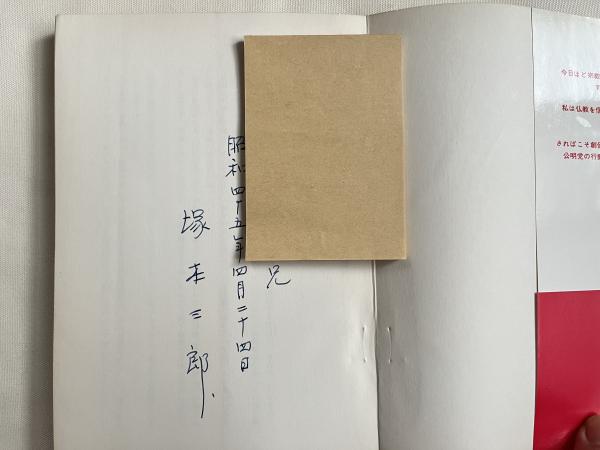 兄
昭和四十五年四月二十四日
塚本三郎
今日ほど宗教
私は仏教を信
さればこそ創価
公明党の行動